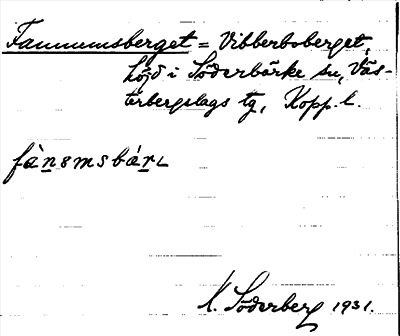 Fannumsberget = Vibberboberget,
höjd i Söderbärke sn, Väs-
terbergslags tg, Kopp. l.
fàn8msbárʟ
K. Söderberg 1931.